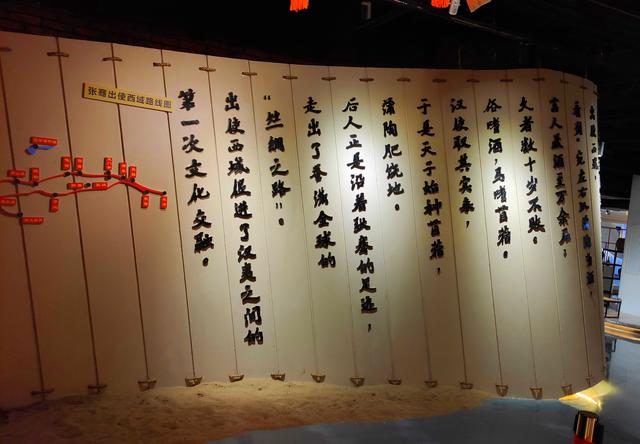 看到:宛左右以蒲陶为酒,
富人藏酒至万余石,
久者数十岁不败。
俗嗜酒,马嗜苜蓿。
汉使取其实来,
于是天子始种苜蓿,
蒲陶肥饶地。
后人正是沿着张骞的足迹,
走出了誉满全球的
“丝绸之路”。
出使西域促进了汉夷之间的
第一次文化交融。
张骞出使西域路线图